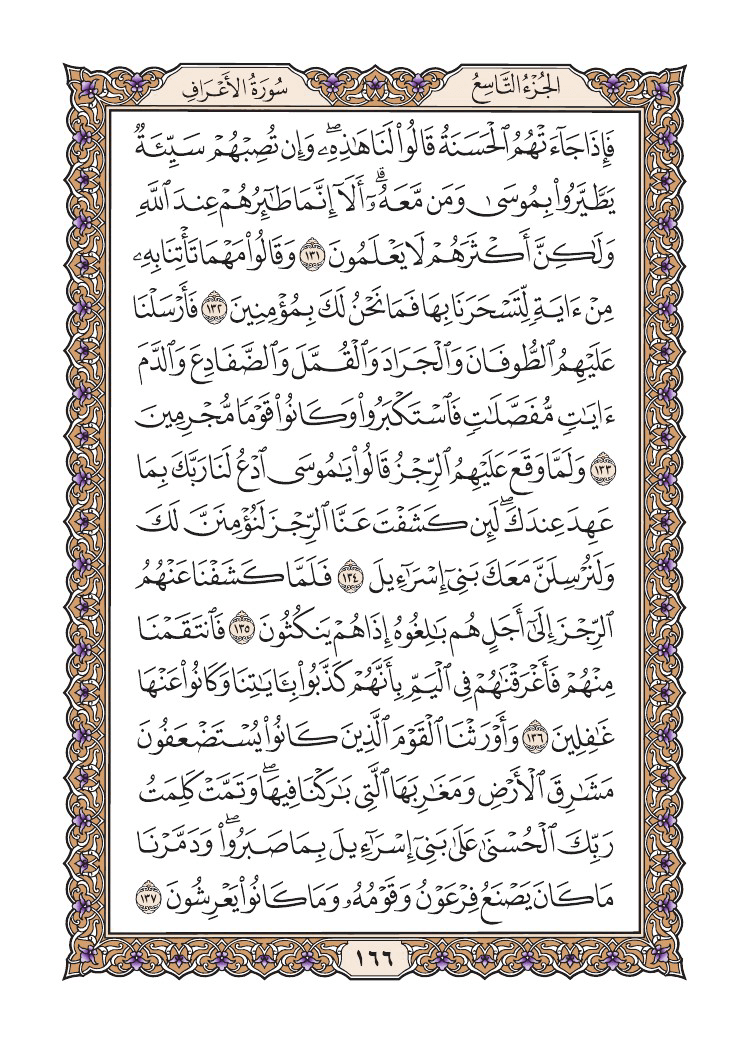 الجُزْءُ التَّاسِعُ
سُورَةُ الأَعْرَافِ
فَإِذَا جَآءَتۡهُمُ ٱلۡحَسَنَةُ قَالُواْ لَنَا هَٰذِهِۦۖ وَإِن تُصِبۡهُمۡ سَيِّئَةٞ
يَطَّيَّرُواْ بِمُوسَىٰ وَمَن مَّعَهُۥٓۗ أَلَآ إِنَّمَا طَٰٓئِرُهُمۡ عِندَ ٱللَّهِ
وَلَٰكِنَّ أَكۡثَرَهُمۡ لَا يَعۡلَمُونَ ١٣١ وَقَالُواْ مَهۡمَا تَأۡتِنَا بِهِۦ
مِنۡ ءَايَةٖ لِّتَسۡحَرَنَا بِهَا فَمَا نَحۡنُ لَكَ بِمُؤۡمِنِينَ ١٣٢ فَأَرۡسَلۡنَا
عَلَيۡهِمُ ٱلطُّوفَانَ وَٱلۡجَرَادَ وَٱلۡقُمَّلَ وَٱلضَّفَادِعَ وَٱلدَّمَ
ءَايَٰتٖ مُّفَصَّلَٰتٖ فَٱسۡتَكۡبَرُواْ وَكَانُواْ قَوۡمٗا مُّجۡرِمِينَ
١٣٣ وَلَمَّا وَقَعَ عَلَيۡهِمُ ٱلرِّجۡزُ قَالُواْ يَٰمُوسَى ٱدۡعُ لَنَا رَبَّكَ بِمَا
عَهِدَ عِندَكَۖ لَئِن كَشَفۡتَ عَنَّا ٱلرِّجۡزَ لَنُؤۡمِنَنَّ لَكَ
وَلَنُرۡسِلَنَّ مَعَكَ بَنِيٓ إِسۡرَٰٓءِيلَ ١٣٤ فَلَمَّا كَشَفۡنَا عَنۡهُمُ
ٱلرِّجۡزَ إِلَىٰٓ أَجَلٍ هُم بَٰلِغُوهُ إِذَا هُمۡ يَنكُثُونَ ١٣٥ فَٱنتَقَمۡنَا
مِنۡهُمۡ فَأَغۡرَقۡنَٰهُمۡ فِي ٱلۡيَمِّ بِأَنَّهُمۡ كَذَّبُواْ بِـَٔايَٰتِنَا وَكَانُواْ عَنۡهَا
غَٰفِلِينَ ١٣٦ وَأَوۡرَثۡنَا ٱلۡقَوۡمَ ٱلَّذِينَ كَانُواْ يُسۡتَضۡعَفُونَ
مَشَٰرِقَ ٱلۡأَرۡضِ وَمَغَٰرِبَهَا ٱلَّتِي بَٰرَكۡنَا فِيهَاۖ وَتَمَّتۡ كَلِمَتُ
رَبِّكَ ٱلۡحُسۡنَىٰ عَلَىٰ بَنِيٓ إِسۡرَٰٓءِيلَ بِمَا صَبَرُواْۖ وَدَمَّرۡنَا
مَا كَانَ يَصۡنَعُ فِرۡعَوۡنُ وَقَوۡمُهُۥ وَمَا كَانُواْ يَعۡرِشُونَ ١٣٧
١٦٦